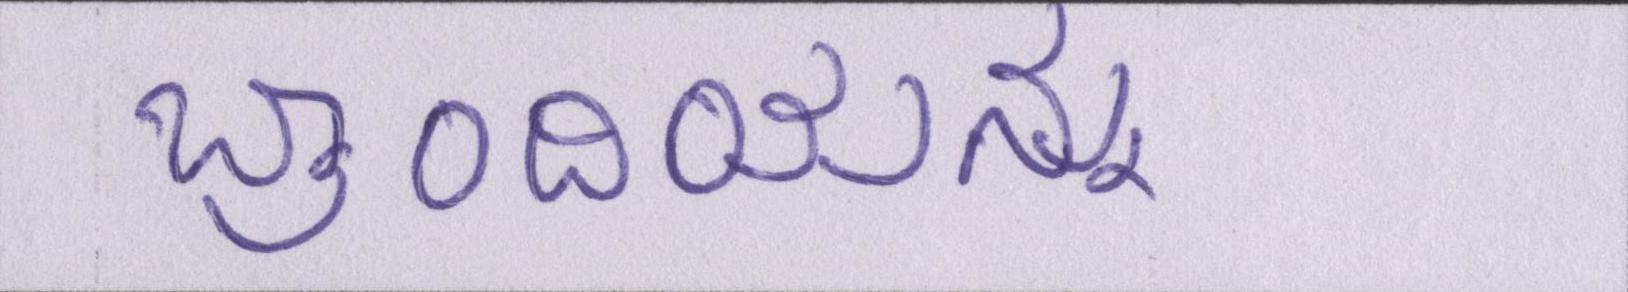 ಬ್ರಾಂದಿಯನ್ನು